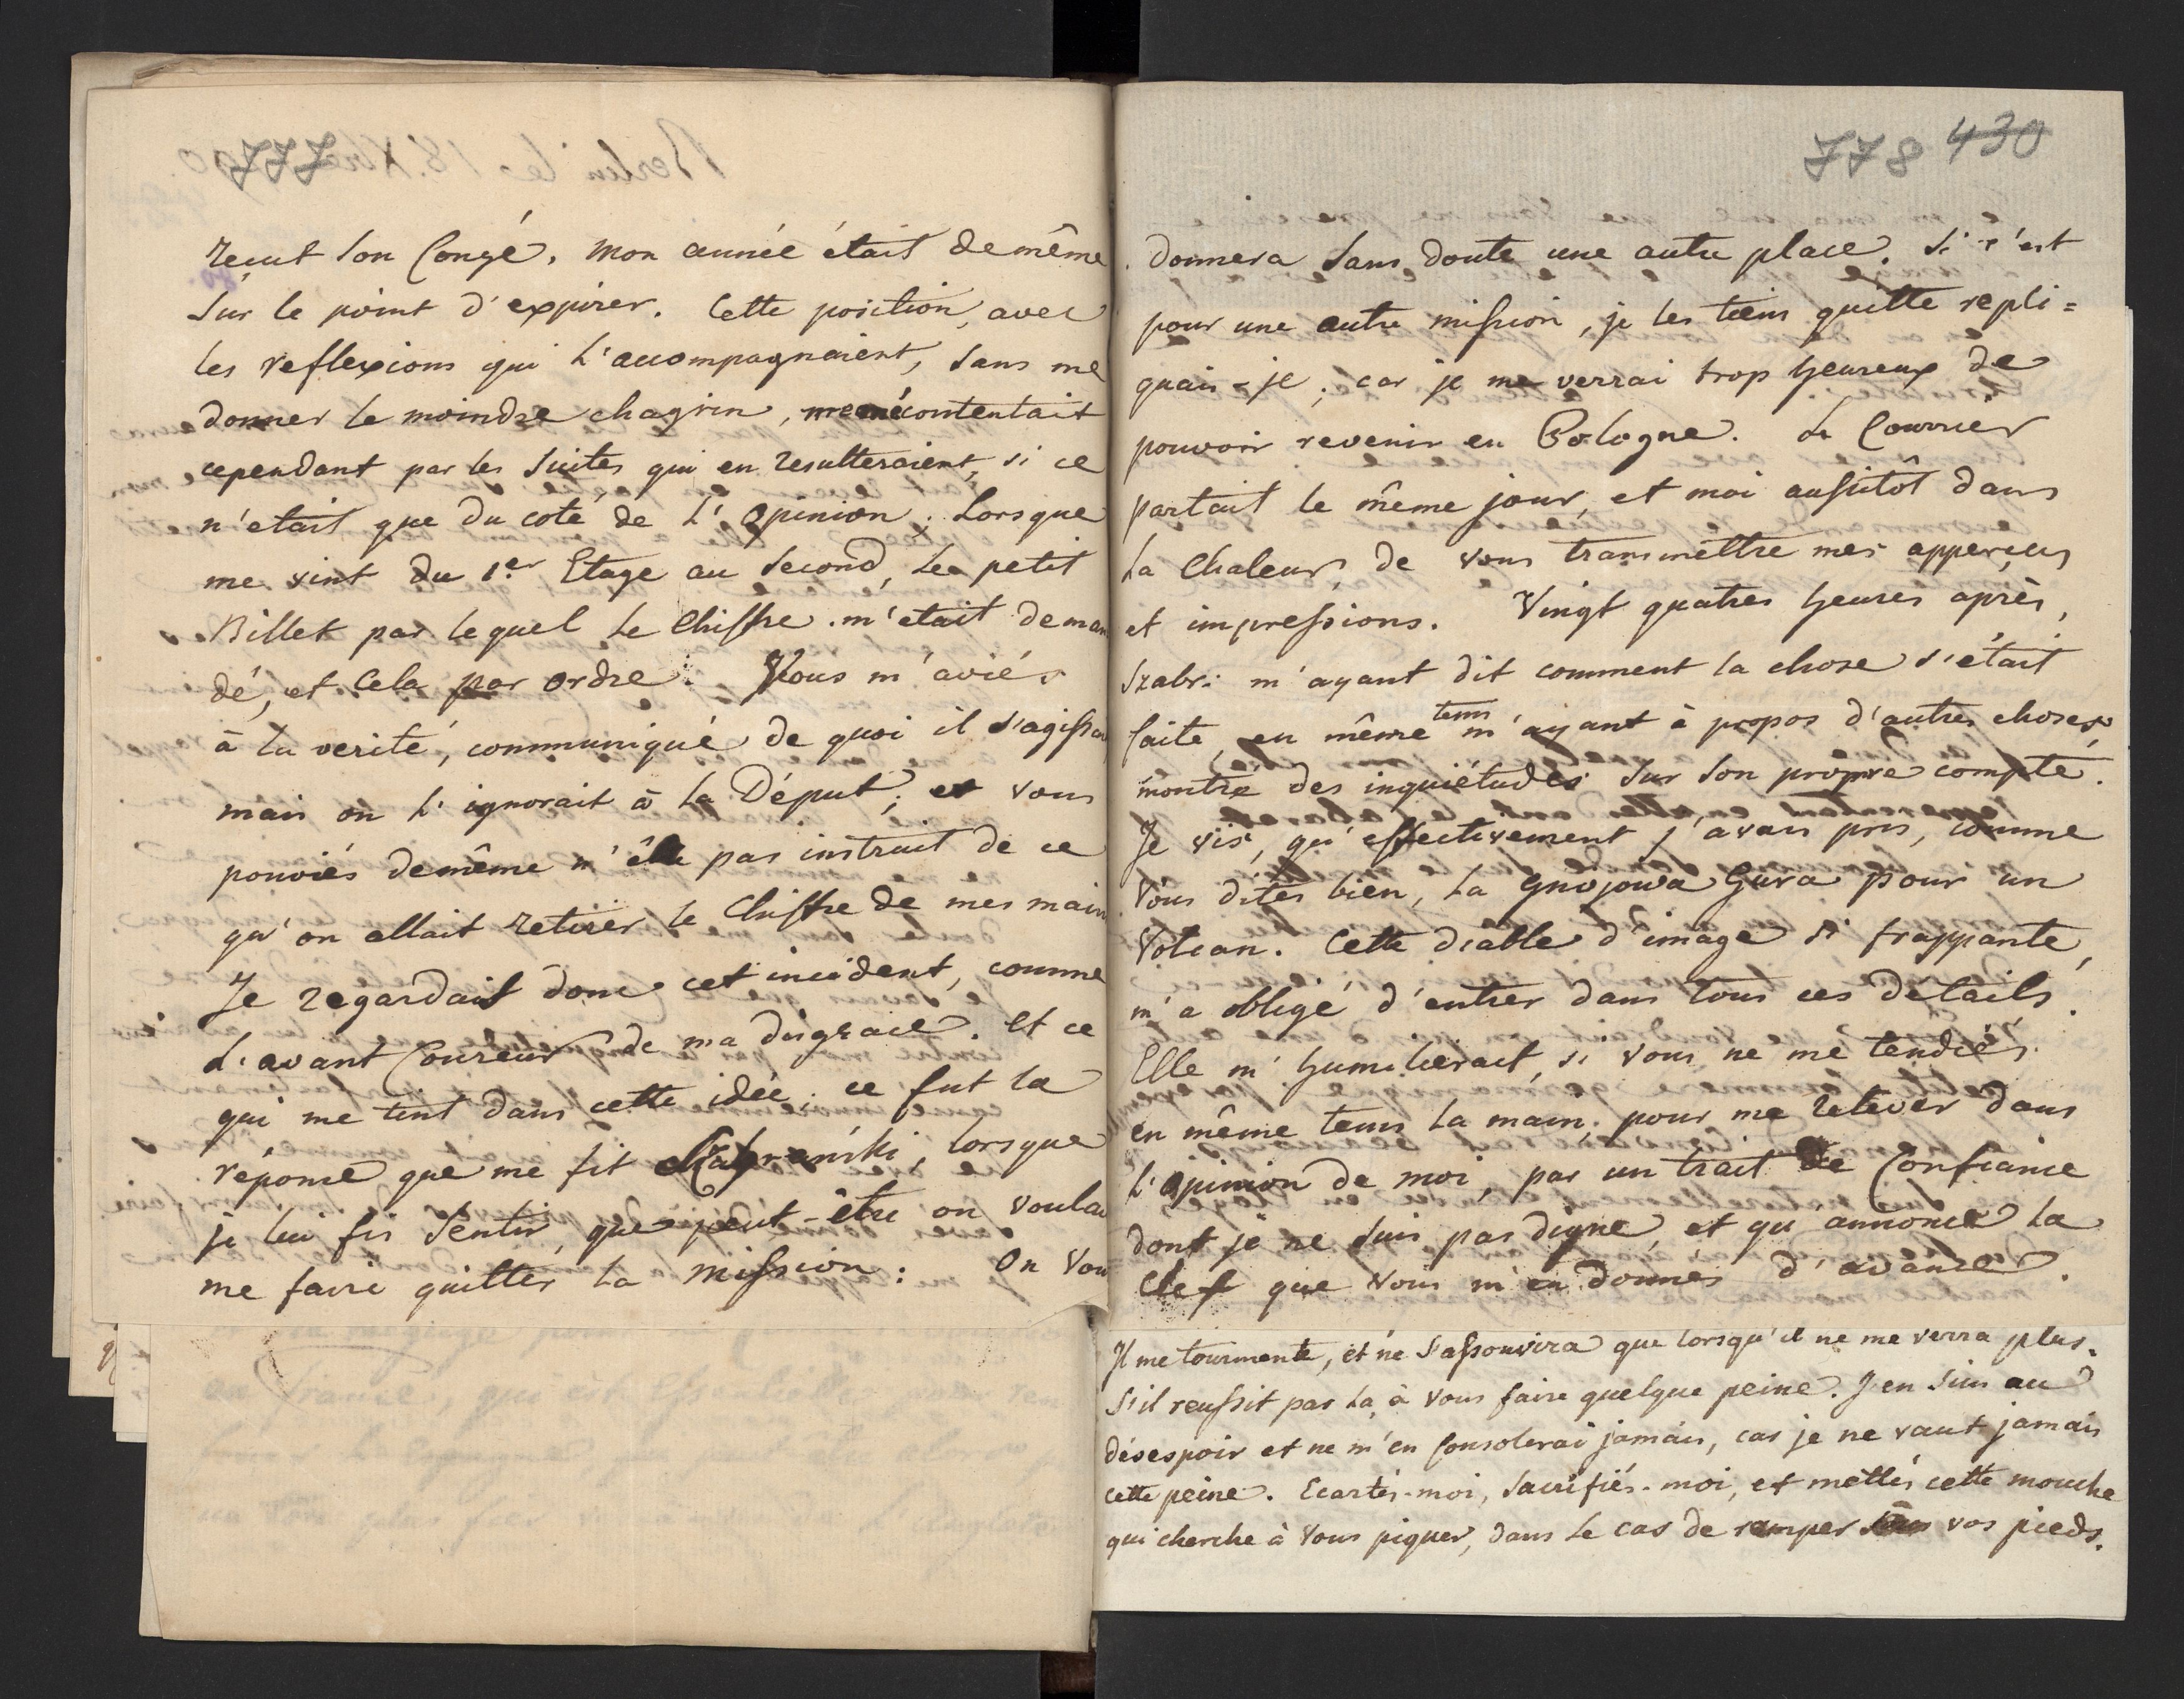 reçut son Congé. Mon année était demême
sur le point d'expirer. Cette position, avec
les reflexions qui l'accompagnaient, sans me
donner le moindre chagrin, mecontentait
cependant par les suites qui en resulteraient, si ce
n'etait que du coté de l'Opinion; Lorsque
me vint du 1er Etage au second, Le petit
Billet par lequel le Chiffre m'etait deman
dé, et Cela par ordre. Vous m'aviés
à la verité, communiqué de quoi il s'agissai
mais on l'ignorait à la Déput; et vous
pouviés demême n'être pas instruit de ce
qu'on allait retirer le Chiffre de mes main
Je regardais donc cet incident, comme
l'avant Coureur de ma disgrace. Et ce
qui me tint dans cette idée; ce fut la
réponse que me fit, lorsque
je lui fis sentir, que peut-être on voulai
me faire quitter la Mission: On vou
778 430
donnera sans doute une autre place. Si c'est
pour une autre mission, je les tiens quitte repli=
quais-je; car je me verrai trop heureux de
pouvoir revenir en Pologne. Le Courrier
partait le même jour, et moi aussitôt dans
la Chaleur, de vous transmettre mes apperçus
et impressions. Vingt quatres heures après,
Szabr: m'ayant dit comment la chose s'était
faite, en même tems m'ayant à propos d'autres choses,
montré des inquiétudes sur son propre compte.
Je vis, qu'effectivement j'avais pris, comme
Vous dites bien, la gnojowa Gura pour un
Volcan. Cette diable d'image si frappante,
m'a obligé d'entrer dans tous ces details.
Elle m'humilierait, si vous ne me tendiés
en même tems la main, pour me relever dans
l'opinion de moi, par un trait de Confiance
dont je ne suis pas digne, et qu'annonce la
Clef que vous m'en donnés d'avance.
Il me tourmente, et ne s'assouvira que lorsqu'il ne me verra plus.
S'il reussit par la, à vous faire quelque peine. J'en suis au
désespoir et ne m'en Consolerai jamais, car je ne vaut jamais
cette peine. Ecartés-moi, sacrifiés-moi, et mettés cette mouche
qui cherche à Vous piquer, dans le cas de ramper sous vos pieds.